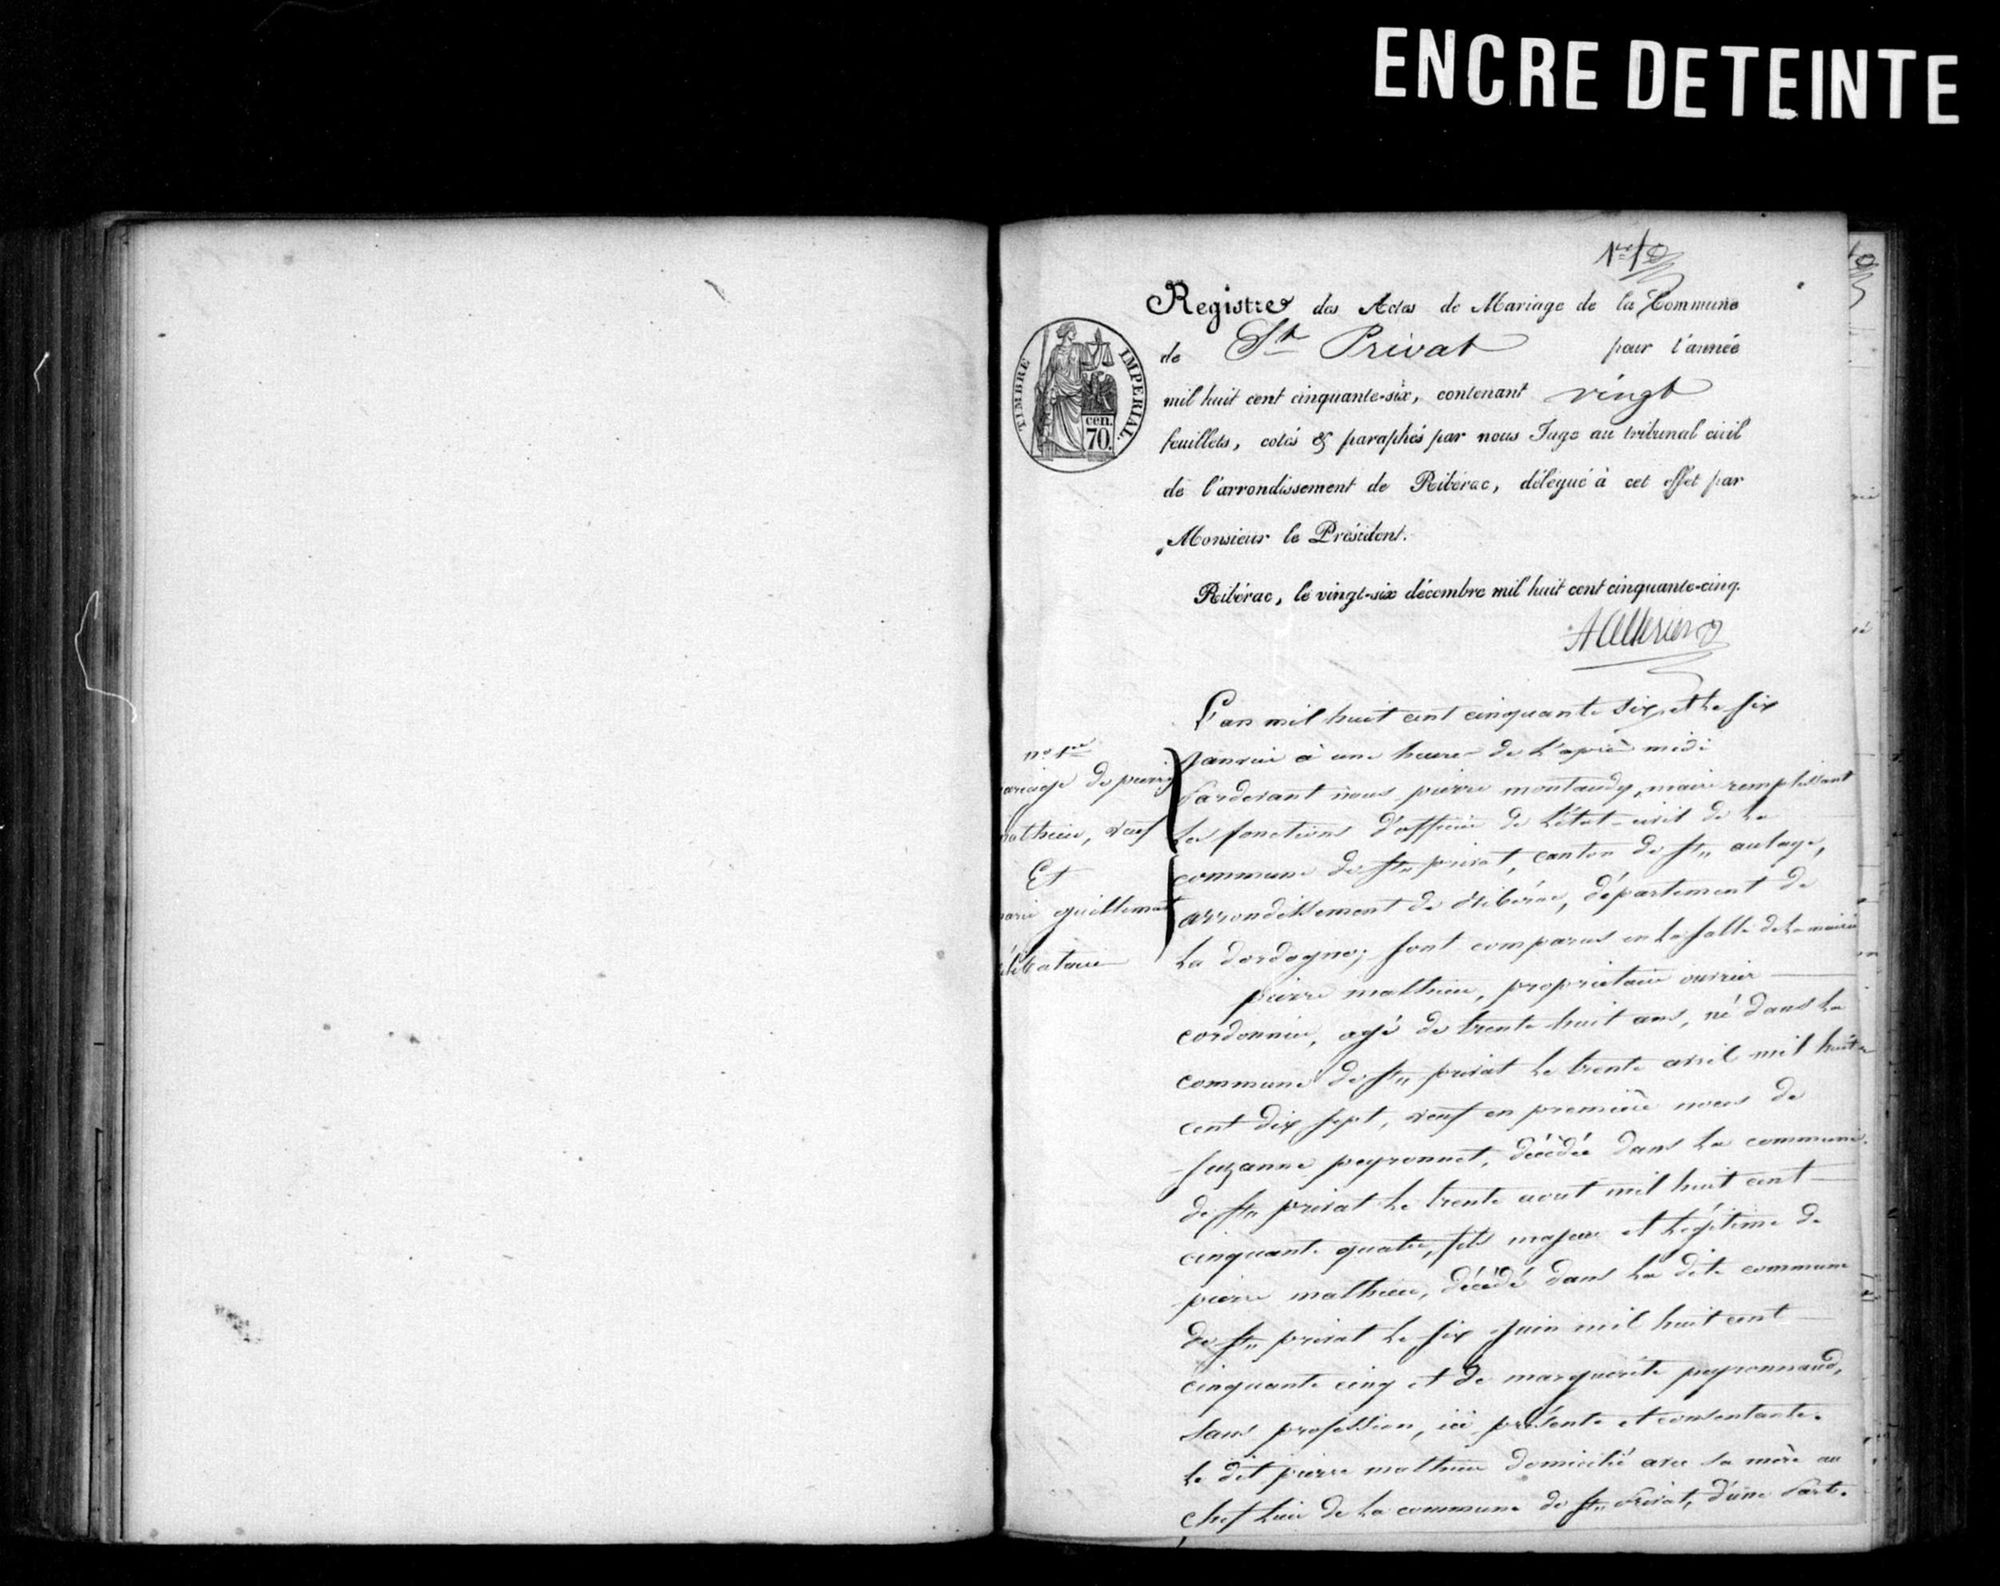 ENCRE DETEINTE
1er
Registre des Actes de Mariage de la Commune
de St Privat pour l'année
mil huit cent cinquante-six, contenant vingt
feuillets, cotés & paraphés par nous Juge au tribunal civil
de l'arrondissement de Ribérac, délégué à cet effet par
Monsieur le Président.
Ribérac, le vingt-six décembre mil huit cent cinquante-cinq.
TIMBRE IMPERIAL.
cen.
70.
no 1er
ariage de pierre
mathieu, veuf
Et
marie guillemat
célibataire
L'an mil huit cent cinquante six, et le six
janvier à une heure de l'après midi
pardevant nous pierre montaudy, maire remplissant
les fonctions d'officier de l'état-civil de la
commune de st privat, canton de st aulaye,
arrondissement de ribérac, département de
la dordogne; sont comparus en la salle de la mairie
pierre mathieu, propriétaire ouvrier
cordonnier, agé de trente huit ans, né dans la
commune de st privat le trente avril mil huit
cent dix sept, veuf en première noces de
suzanne peyronnet, décédée dans la commune
de st privat le trente aout mil huit cent
cinquante quatre, fils majeur et légitime de
pierre mathieu, décédé dans la dite commune
de st privat le six juin mil huit cent
cinquante cinq et de marguerite peyronnaud,
sans profession, ici présente et consentante.
le dit pierre mathieu domicilié avec sa mère au
chef lieu de la commune de st privat, d'une part.